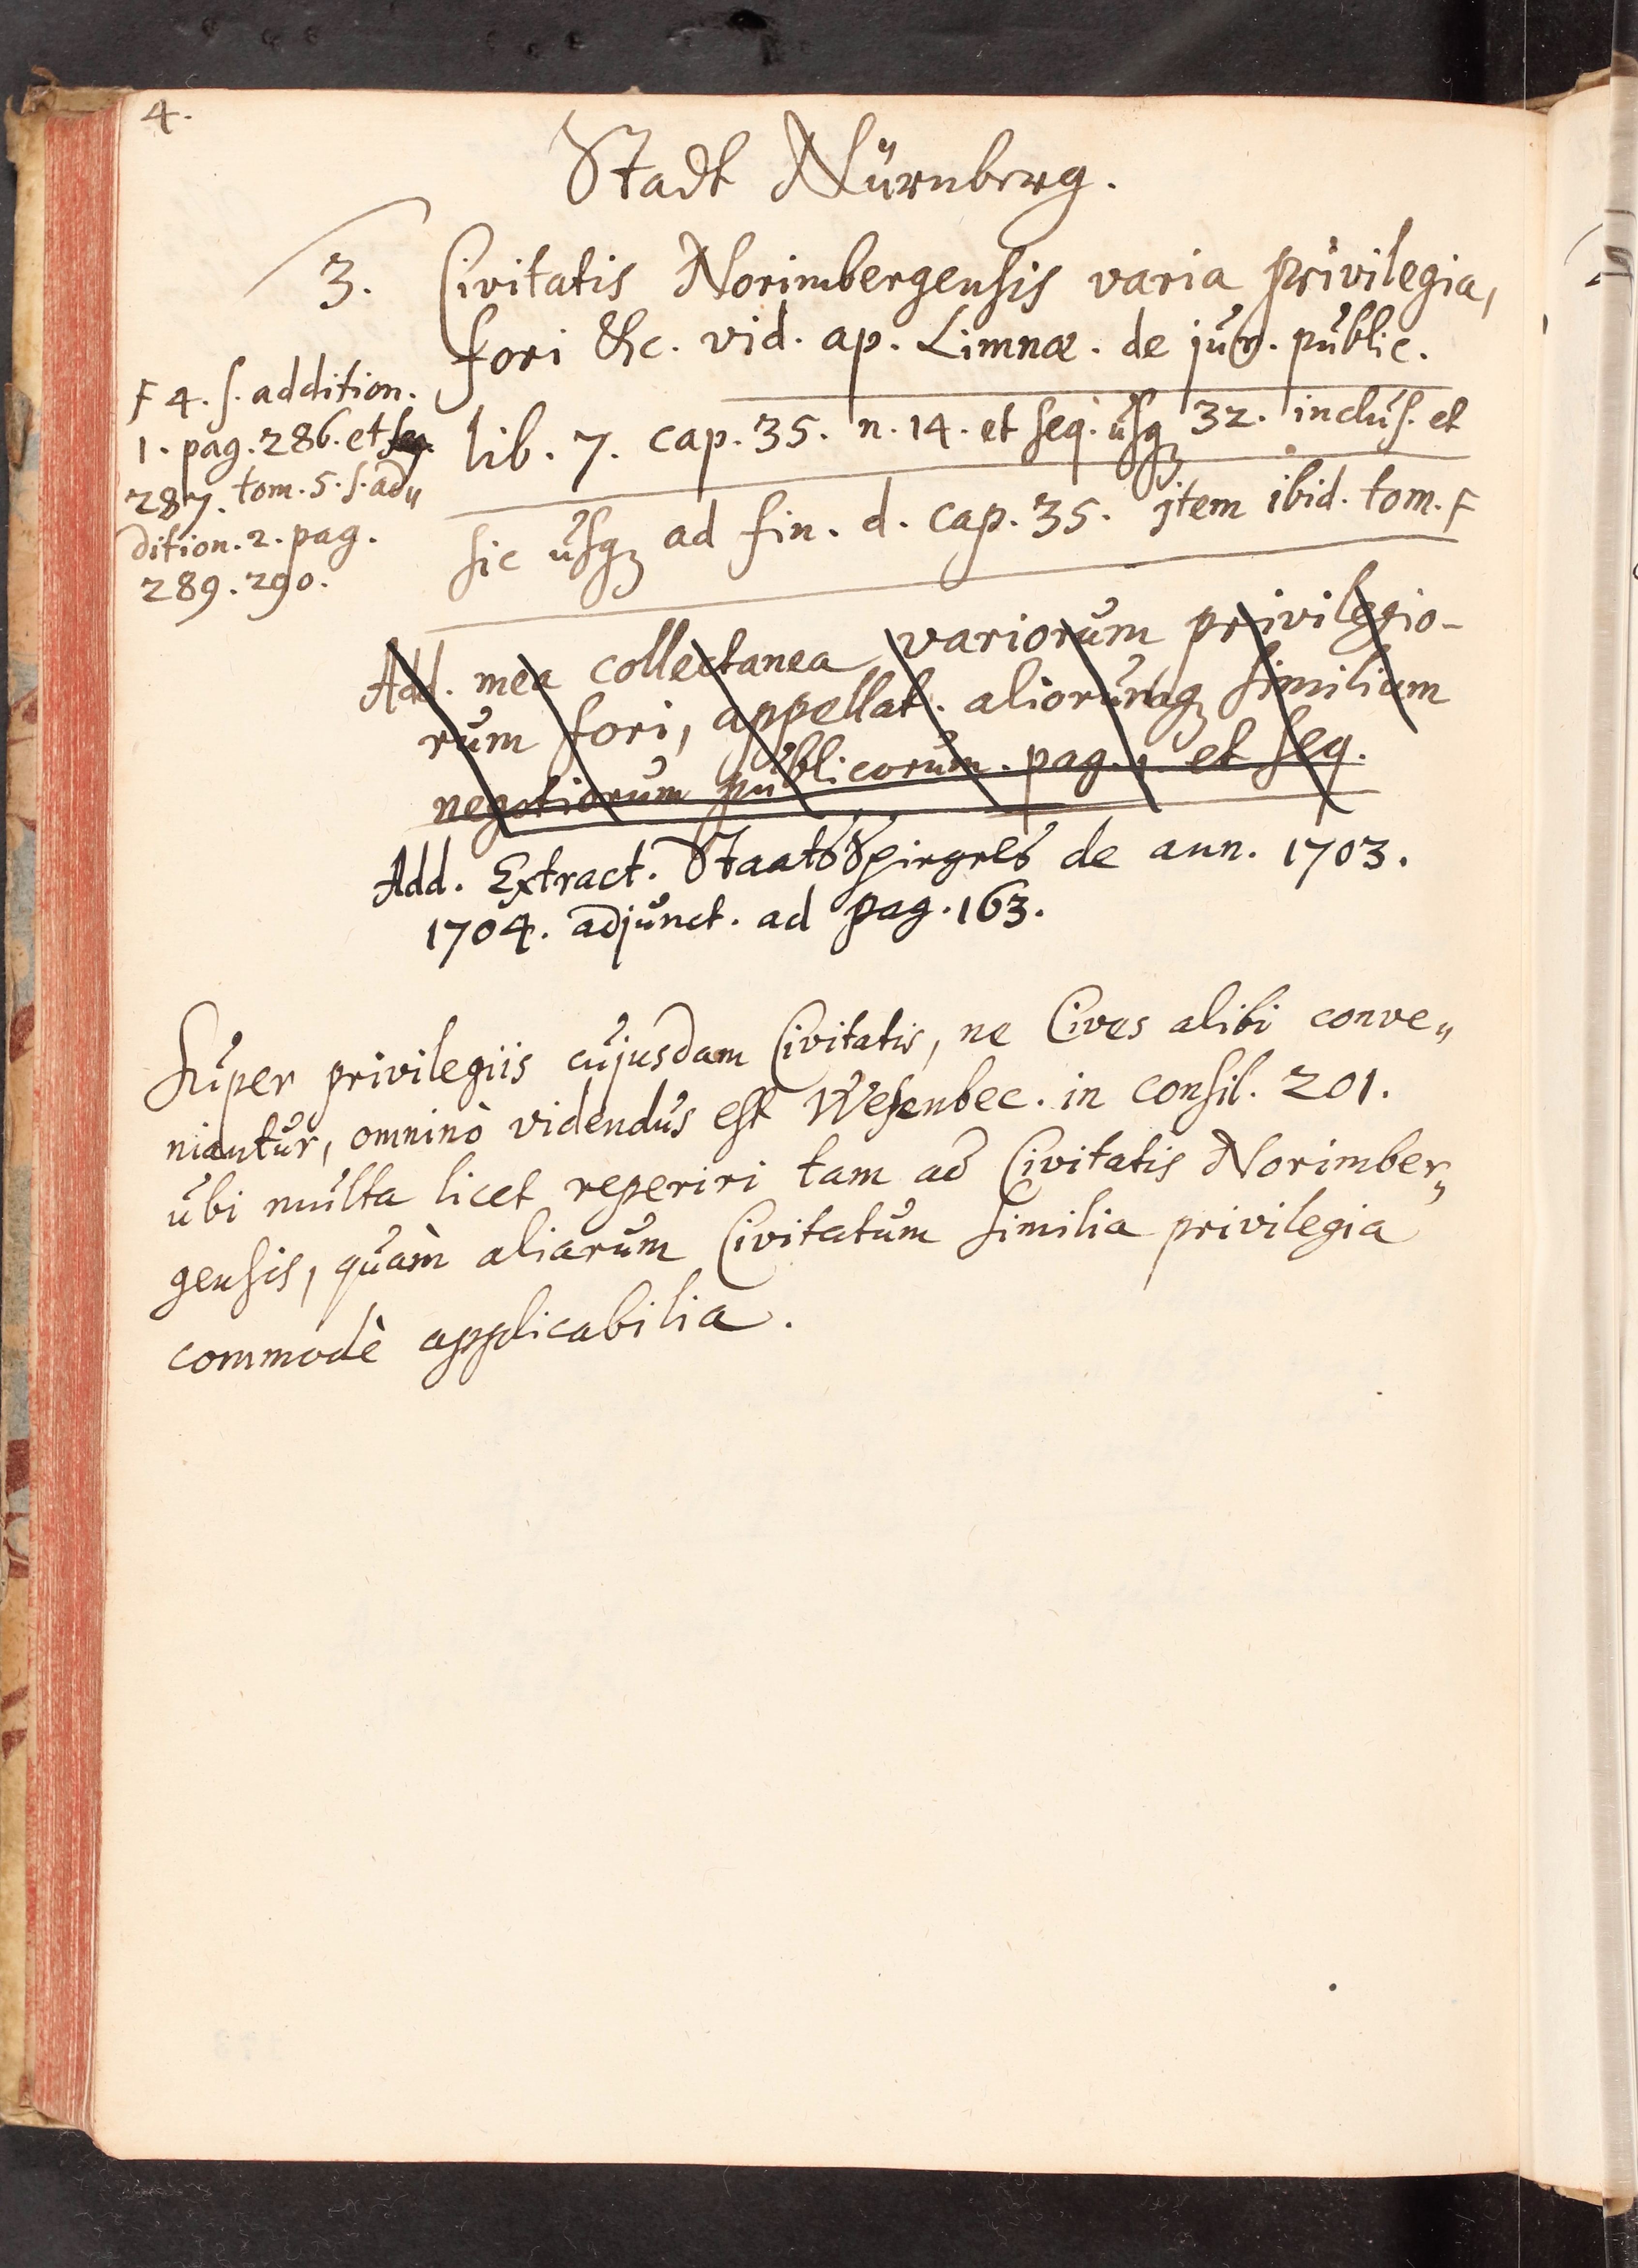 4.
Stadt Nürnberg.
3. Civitatis Norimbergensis varia privilegia,
fori &c. vid. ap. Limnæ. de jur. public.
lib. 7. cap. 35. n. 14. et seq. usqꝫ 32. inclus. et
sic usqꝫ ad fin. d. cap. 35. jtem ibid. tom. F
F 4. s. addition.
1. pag. 286. et seq.
287. tom. 5. s. ad„
dition. 2. pag.
289. 290.
Add. mea collectanea variorum privilegio-
rum fori, appellat. aliorumqꝫ similium
negotiorum publicorum. pag. 1. et seq.
Add. Extract. Staats Spiegels de ann. 1703.
1704. adjunct. ad pag. 163.
Super privilegiis cujusdam Civitatis, ne Cives alibi conve„
niantur, omninò videndus est Wesenbec. in consil. 201.
ubi multa licet reperiri tam ad Civitatis Norimber„
gensis, quàm aliarum Civitatum similia privilegia
commodè applicabilia.